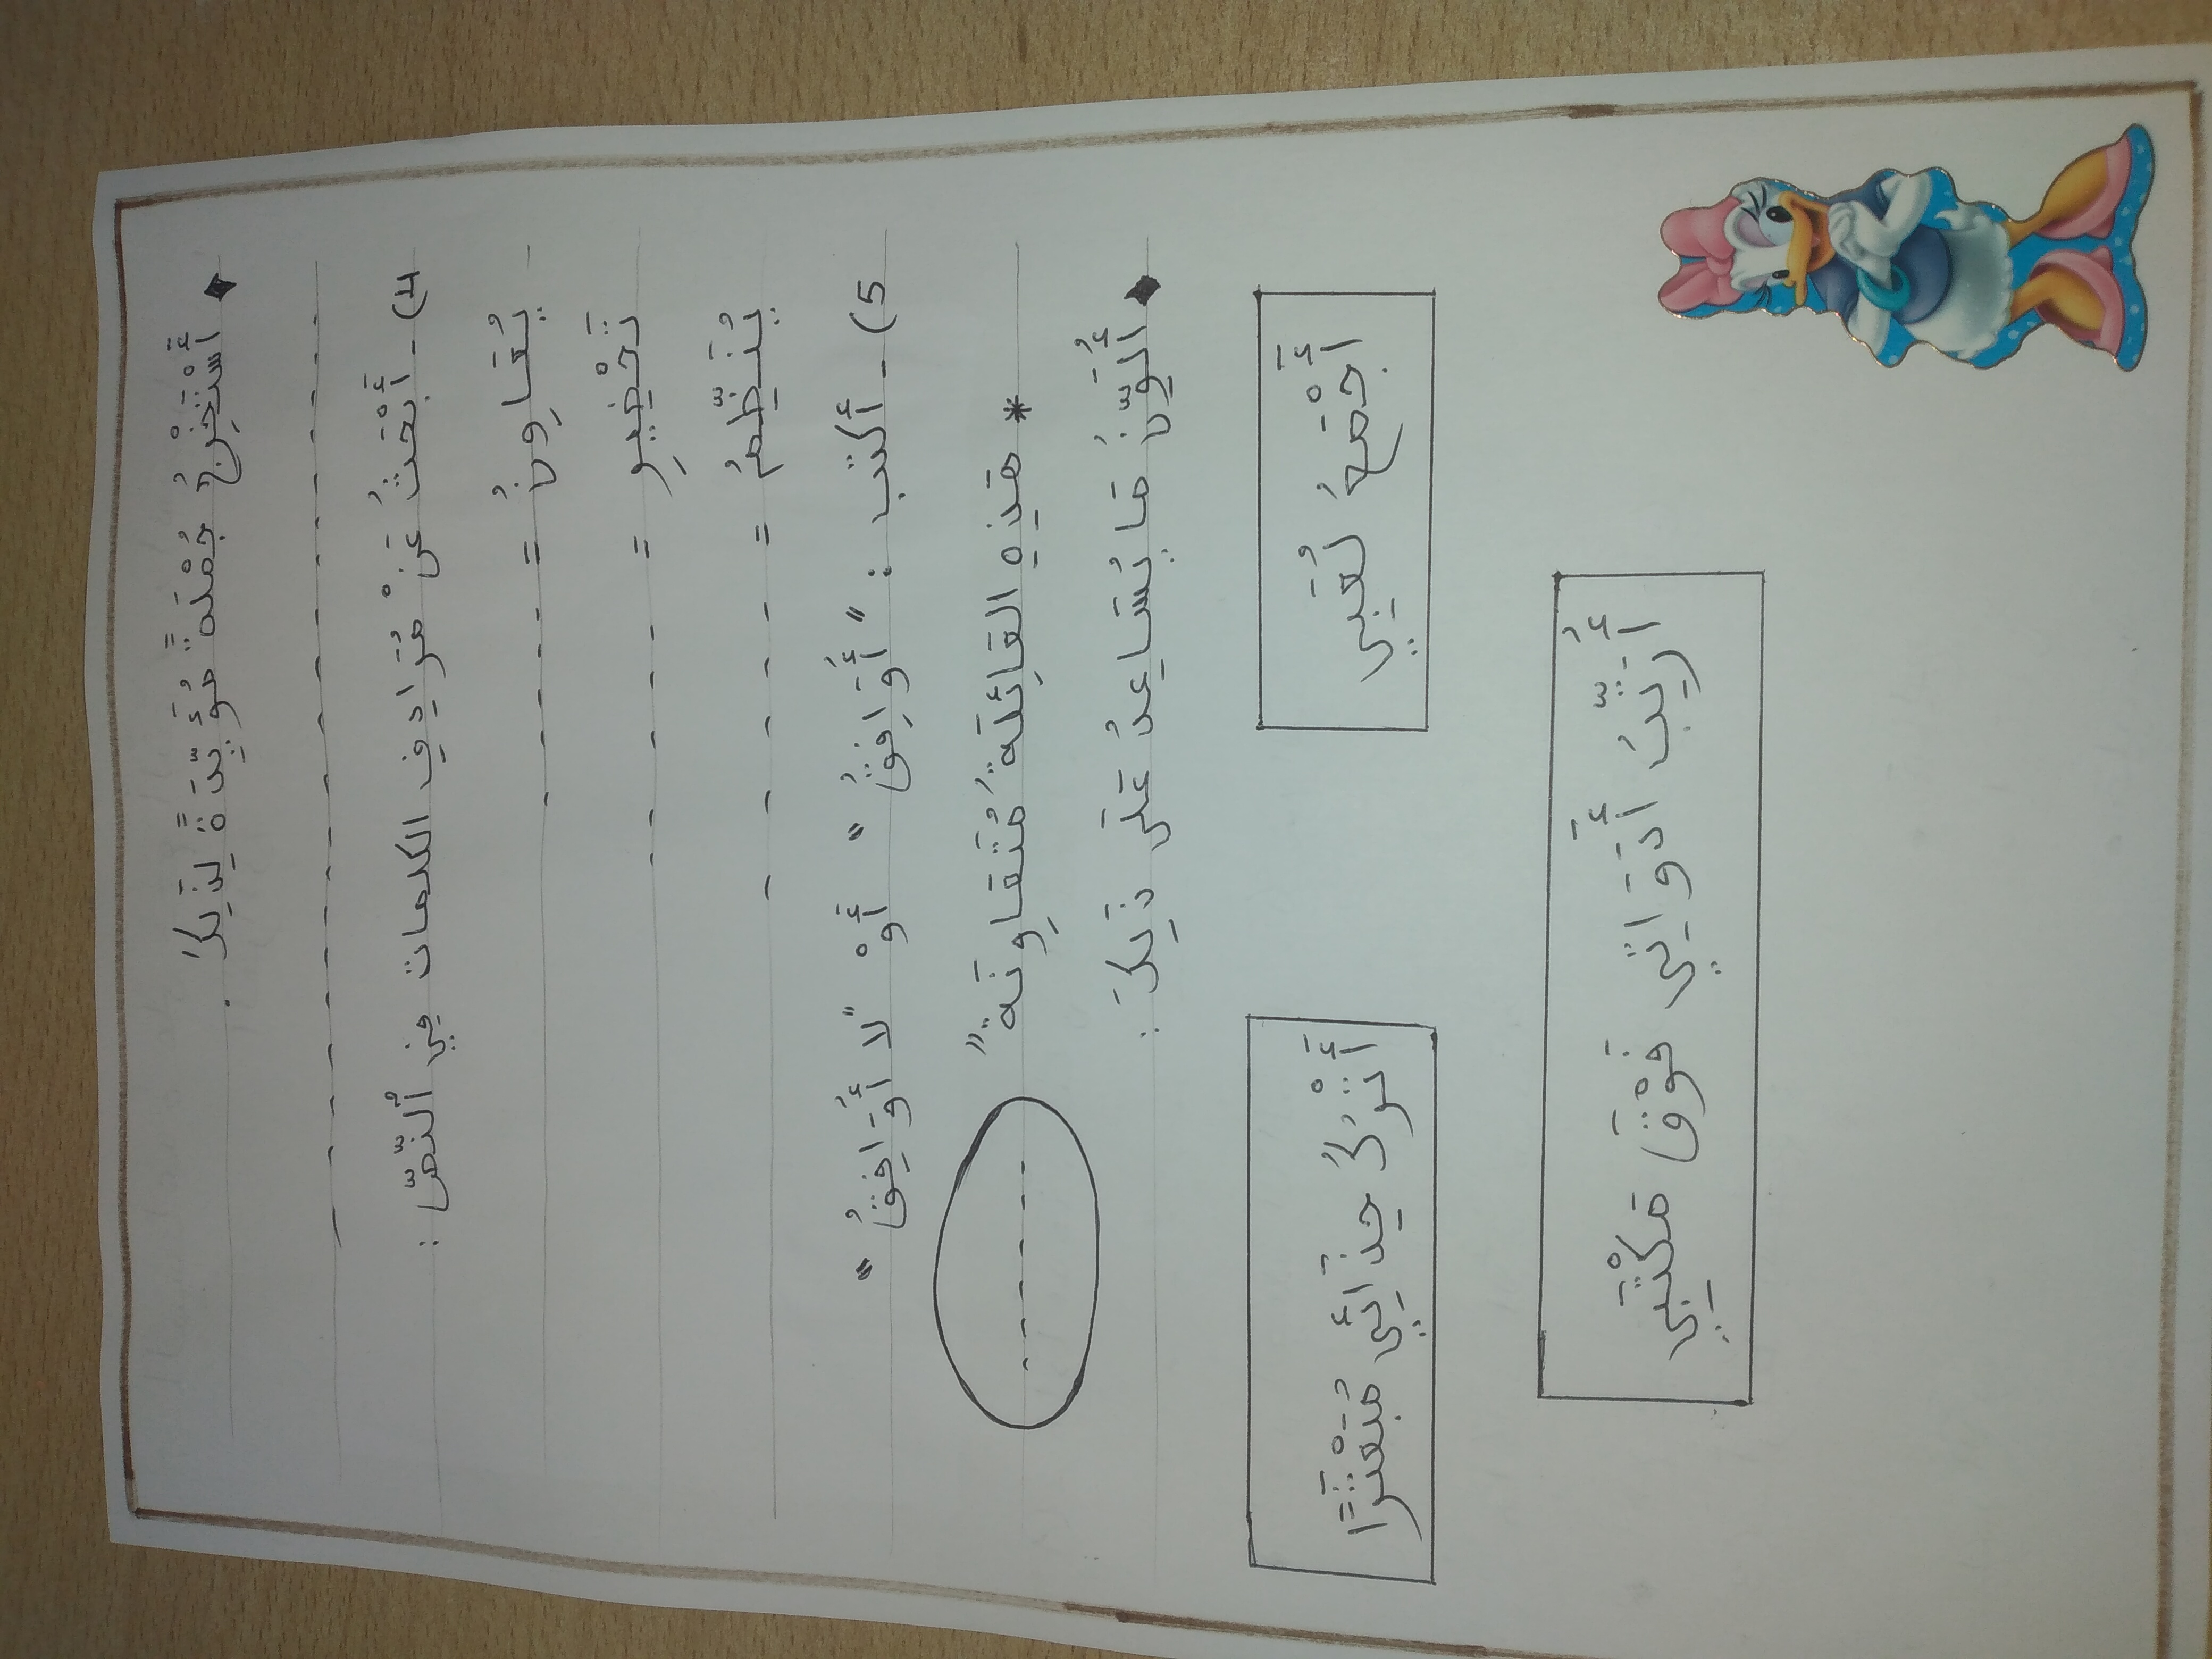 ◆ أَسْتَخْرِجُ جُمْلَةً مُؤَيِّدَةً لِذَلِكَ.
4)- أَبْحَثُ عَنْ مُرَادِفِ الكلمات فِي ٱلنَّصِّ:
يُعَاوِنُ = -----
تَحْضِيرِ = -----
يُنَظِّمُ = -----
5)- أكتب: "أُوَافِقُ" أَوْ "لا أُوَافِقُ"
* هَذِهِ العَائِلَةُ مُتَعَاوِنَةٌ" -----
◆ أُلَوِّنُ مَا يُسَاعِدُ عَلَى ذَلِكَ:
أَجْمَعُ لُعَبِي
أَتْرُكُ حِذَائِي مُبَعْثَرًا
أُرَتِّبُ أَدَوَاتِي فَوْقَ مَكْتَبِي